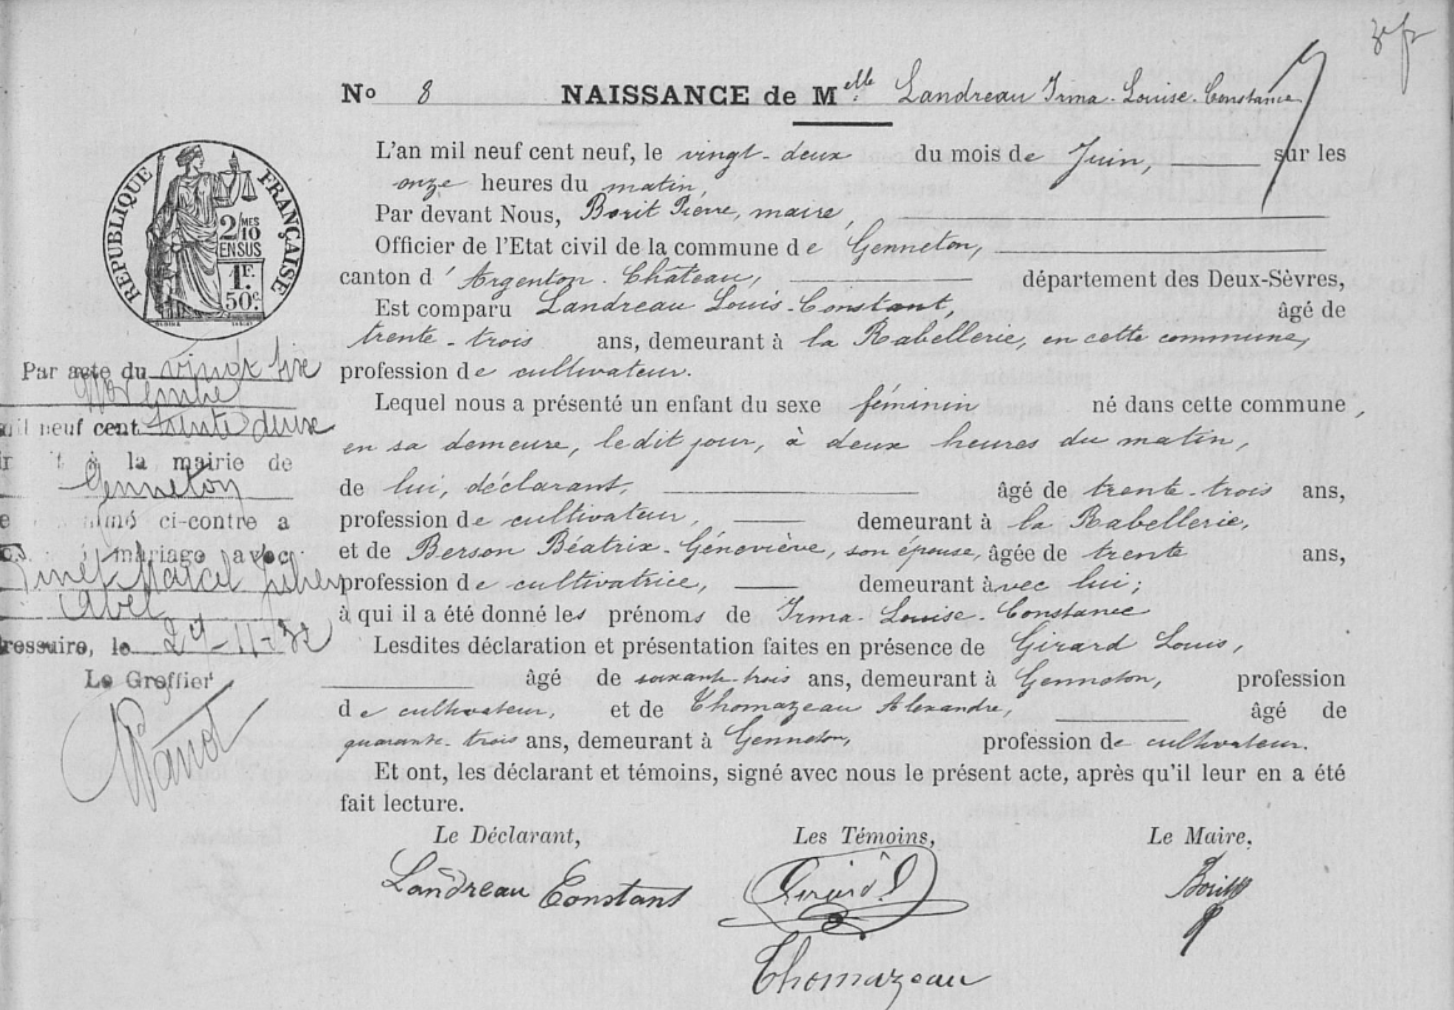 No 8 NAISSANCE de Melle Landreau Irma-Louise-Constance
L'an mil neuf cent neuf, le vingt-deux du mois de Juin, sur les
onze heures du matin,
Par devant Nous, Borit Pierre, maire,
Officier de l'Etat civil de la commune de Genneton,
canton d'Argenton-Château, département des Deux-Sèvres,
Est comparu Landreau Louis-Constant, âgé de
trente-trois ans, demeurant à la Rabellerie, en cette commune,
profession de cultivateur.
Lequel nous a présenté un enfant du sexe féminin né dans cette commune,
en sa demeure, ledit jour, à deux heures du matin,
de lui, déclarant, âgé de trente-trois ans,
profession de cultivateur, demeurant à la Rabellerie,
et de Berson Béatrix-Géneviève, son épouse, âgée de trente ans,
profession de cultivatrice, demeurant avec lui;
à qui il a été donné les prénoms de Irma-Louise-Constance
Lesdites déclaration et présentation faites en présence de Girard Louis,
âgé de soixante-trois ans, demeurant à Genneton, profession
de cultivateur, et de Thomazeau Alexandre, âgé de
quarante-trois ans, demeurant à Genneton, profession de cultivateur.
Et ont, les déclarant et témoins, signé avec nous le présent acte, après qu'il leur en a été
fait lecture.
Le Déclarant, Les Témoins, Le Maire,
Landreau Constant Girard L Borit
Thomazeau
RÉPUBLIQUE FRANÇAISE
2/10 MES
EN SUS
1F.
50c.
Par acte du vingt six
Novembre
mil neuf cent trente deux
à la mairie de
Genneton
ci-contre a
mariage avec
Marcel Julien
Abel
ressuire, le 29-11-32
Le Greffier